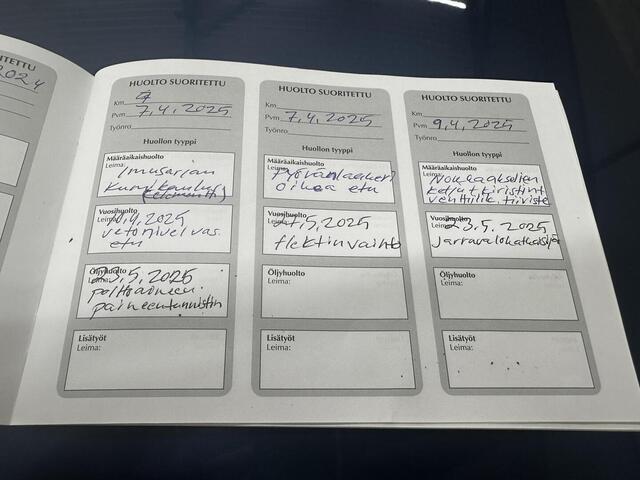 2024
HUOLTO SUORITETTU
Km
Pvm 7,4,2025
Työnro
Huollon tyyppi
Määräaikaishuolto
Leima:
Imusarjan
Vuosihuolto
Leima:
4,2025
vetonivel vas.
etu
Öljyhuolto
Leima:
5,2025
polttoaineen
paineentunnistin
Lisätyöt
Leima:
HUOLTO SUORITETTU
Km
Pvm 7,4,2025
Työnro
Huollon tyyppi
Määräaikaishuolto
Leima:
Pyöränlaakeri
oikea etu
Vuosihuolto
Leima:
5,2025
flektinvaihto
Öljyhuolto
Leima:
Lisätyöt
Leima:
HUOLTO SUORITETTU
Km
Pvm 9,4,2025
Työnro
Huollon tyyppi
Määräaikaishuolto
Leima:
Nokkaakselien
venttiilik. tiiviste
Vuosihuolto
Leima:
23,5,2025
Jarruvalokatkaisija
Öljyhuolto
Leima:
Lisätyöt
Leima: